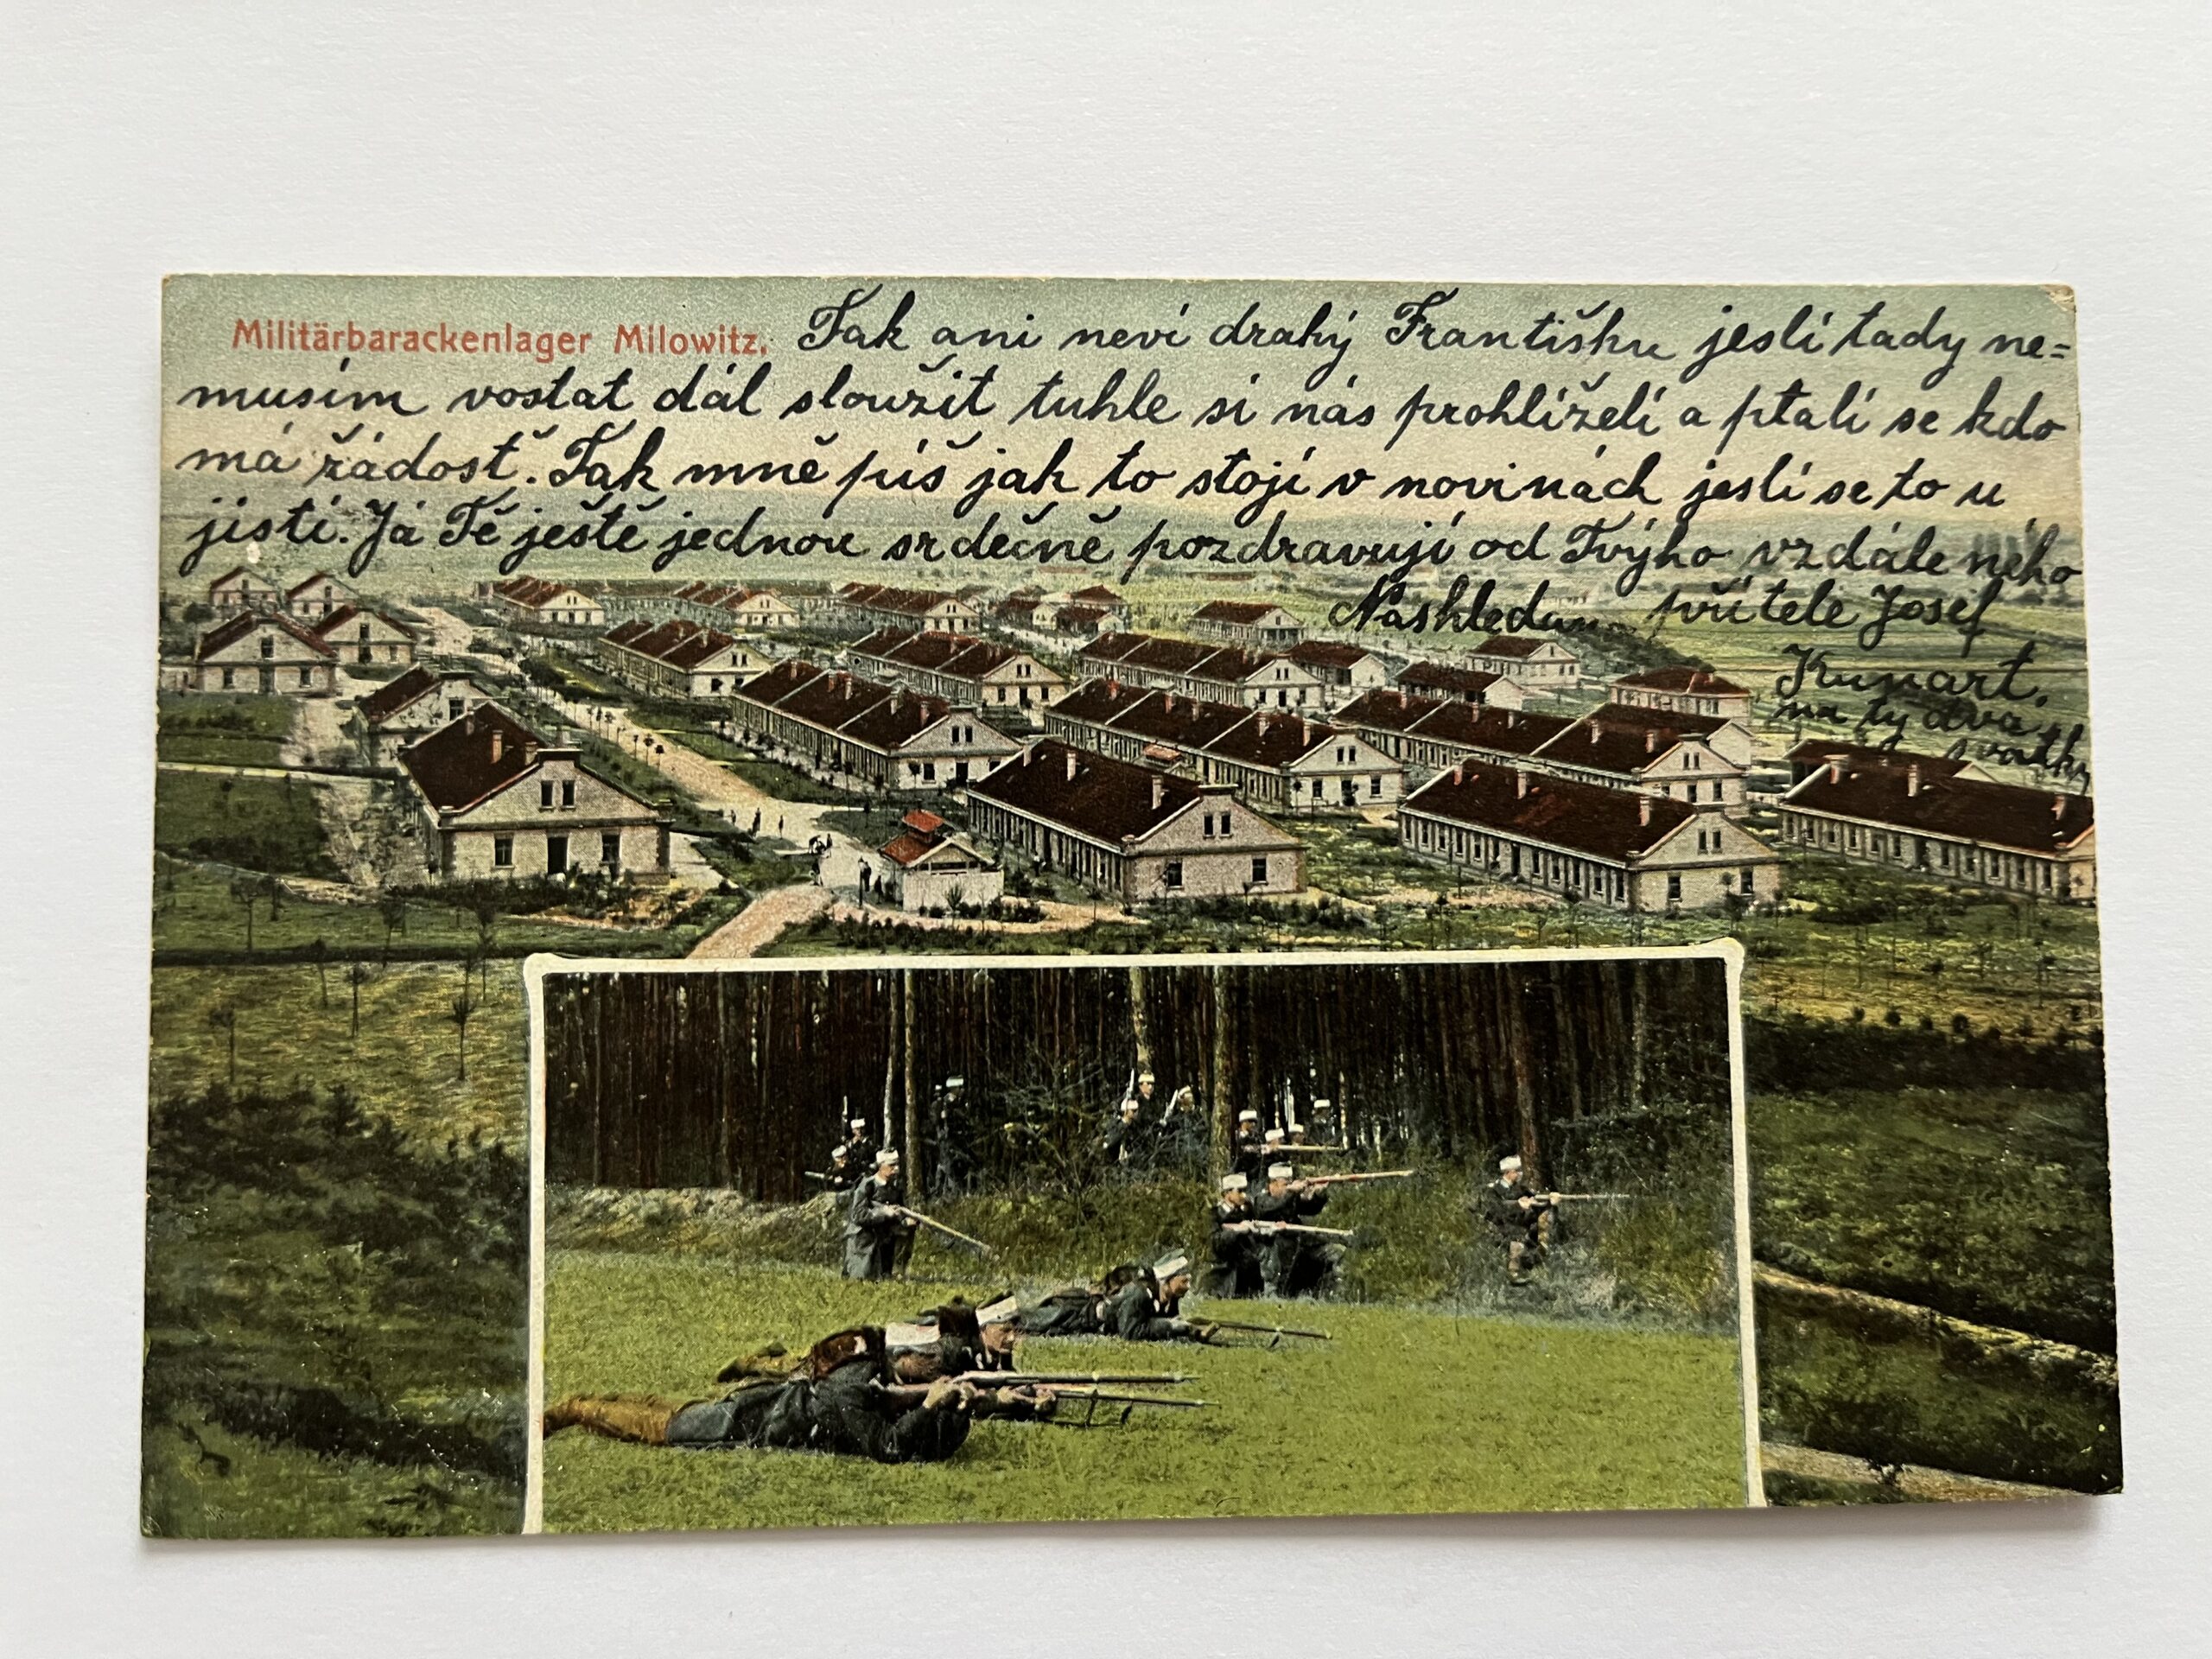 Militärbarackenlager Milowitz. Tak ani neví drahý Františku jesli tady ne=
musím vostat dál sloužit tuhle si nás prohlíželi a ptali se kdo
má řádosť. Tak mně piš jak to stojí v novinách jesli se to u
jistí. Já Tě ještě jednou srdečně pozdravuji od Tvýho vzdáleného
Nashledanou přítele Josef
Kunart.
na ty dva
svátky